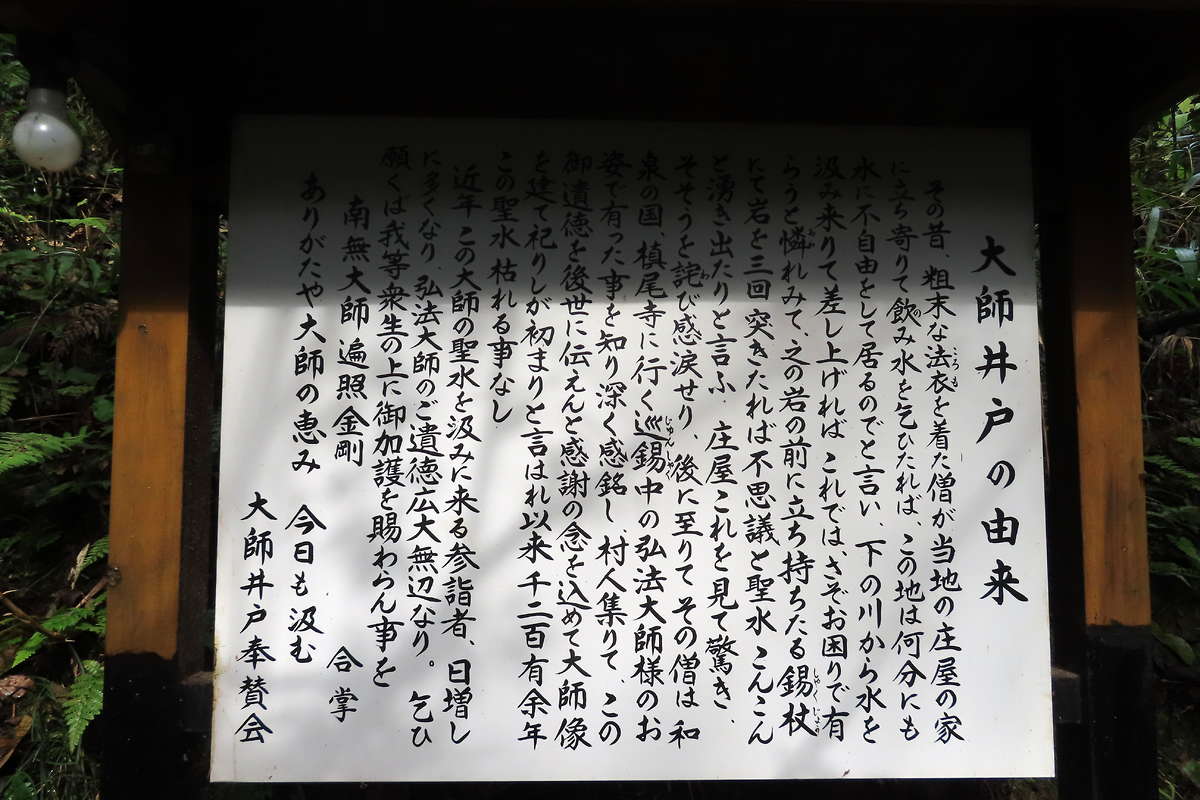 大師井戸の由来
その昔、粗末な法衣を着た僧が当地の庄屋の家
に立ち寄りて飲み水を乞ひたれば、この地は何分にも
水に不自由をして居るのでと言い、下の川から水を
汲み来りて差し上げれば これでは、さぞお困りで有
らうと憐れみて、之の岩の前に立ち持ちたる錫杖
にて岩を三回突きたれば不思議と聖水こんこん
と湧き出たりと言ふ 庄屋これを見て驚き、
そそうを詫び感涙せり、後に至りてその僧は和
泉の国、槙尾寺に行く巡錫中の弘法大師様のお
姿で有った事を知り深く感銘し、村人集りて、この
御遺徳を後世に伝えんと感謝の念を込めて大師像
を建て祀りしが初まりと言はれ以来千二百有余年
この聖水 枯れる事なし
近年この大師の聖水を汲みに来る参詣者、日増し
に多くなり、弘法大師のご遺徳広大無辺なり。乞ひ
願くは我等衆生の上に御加護を賜わらん事を
南無大師遍照金剛 合掌
ありがたや大師の恵み 今日も汲む
大師井戸奉賛会